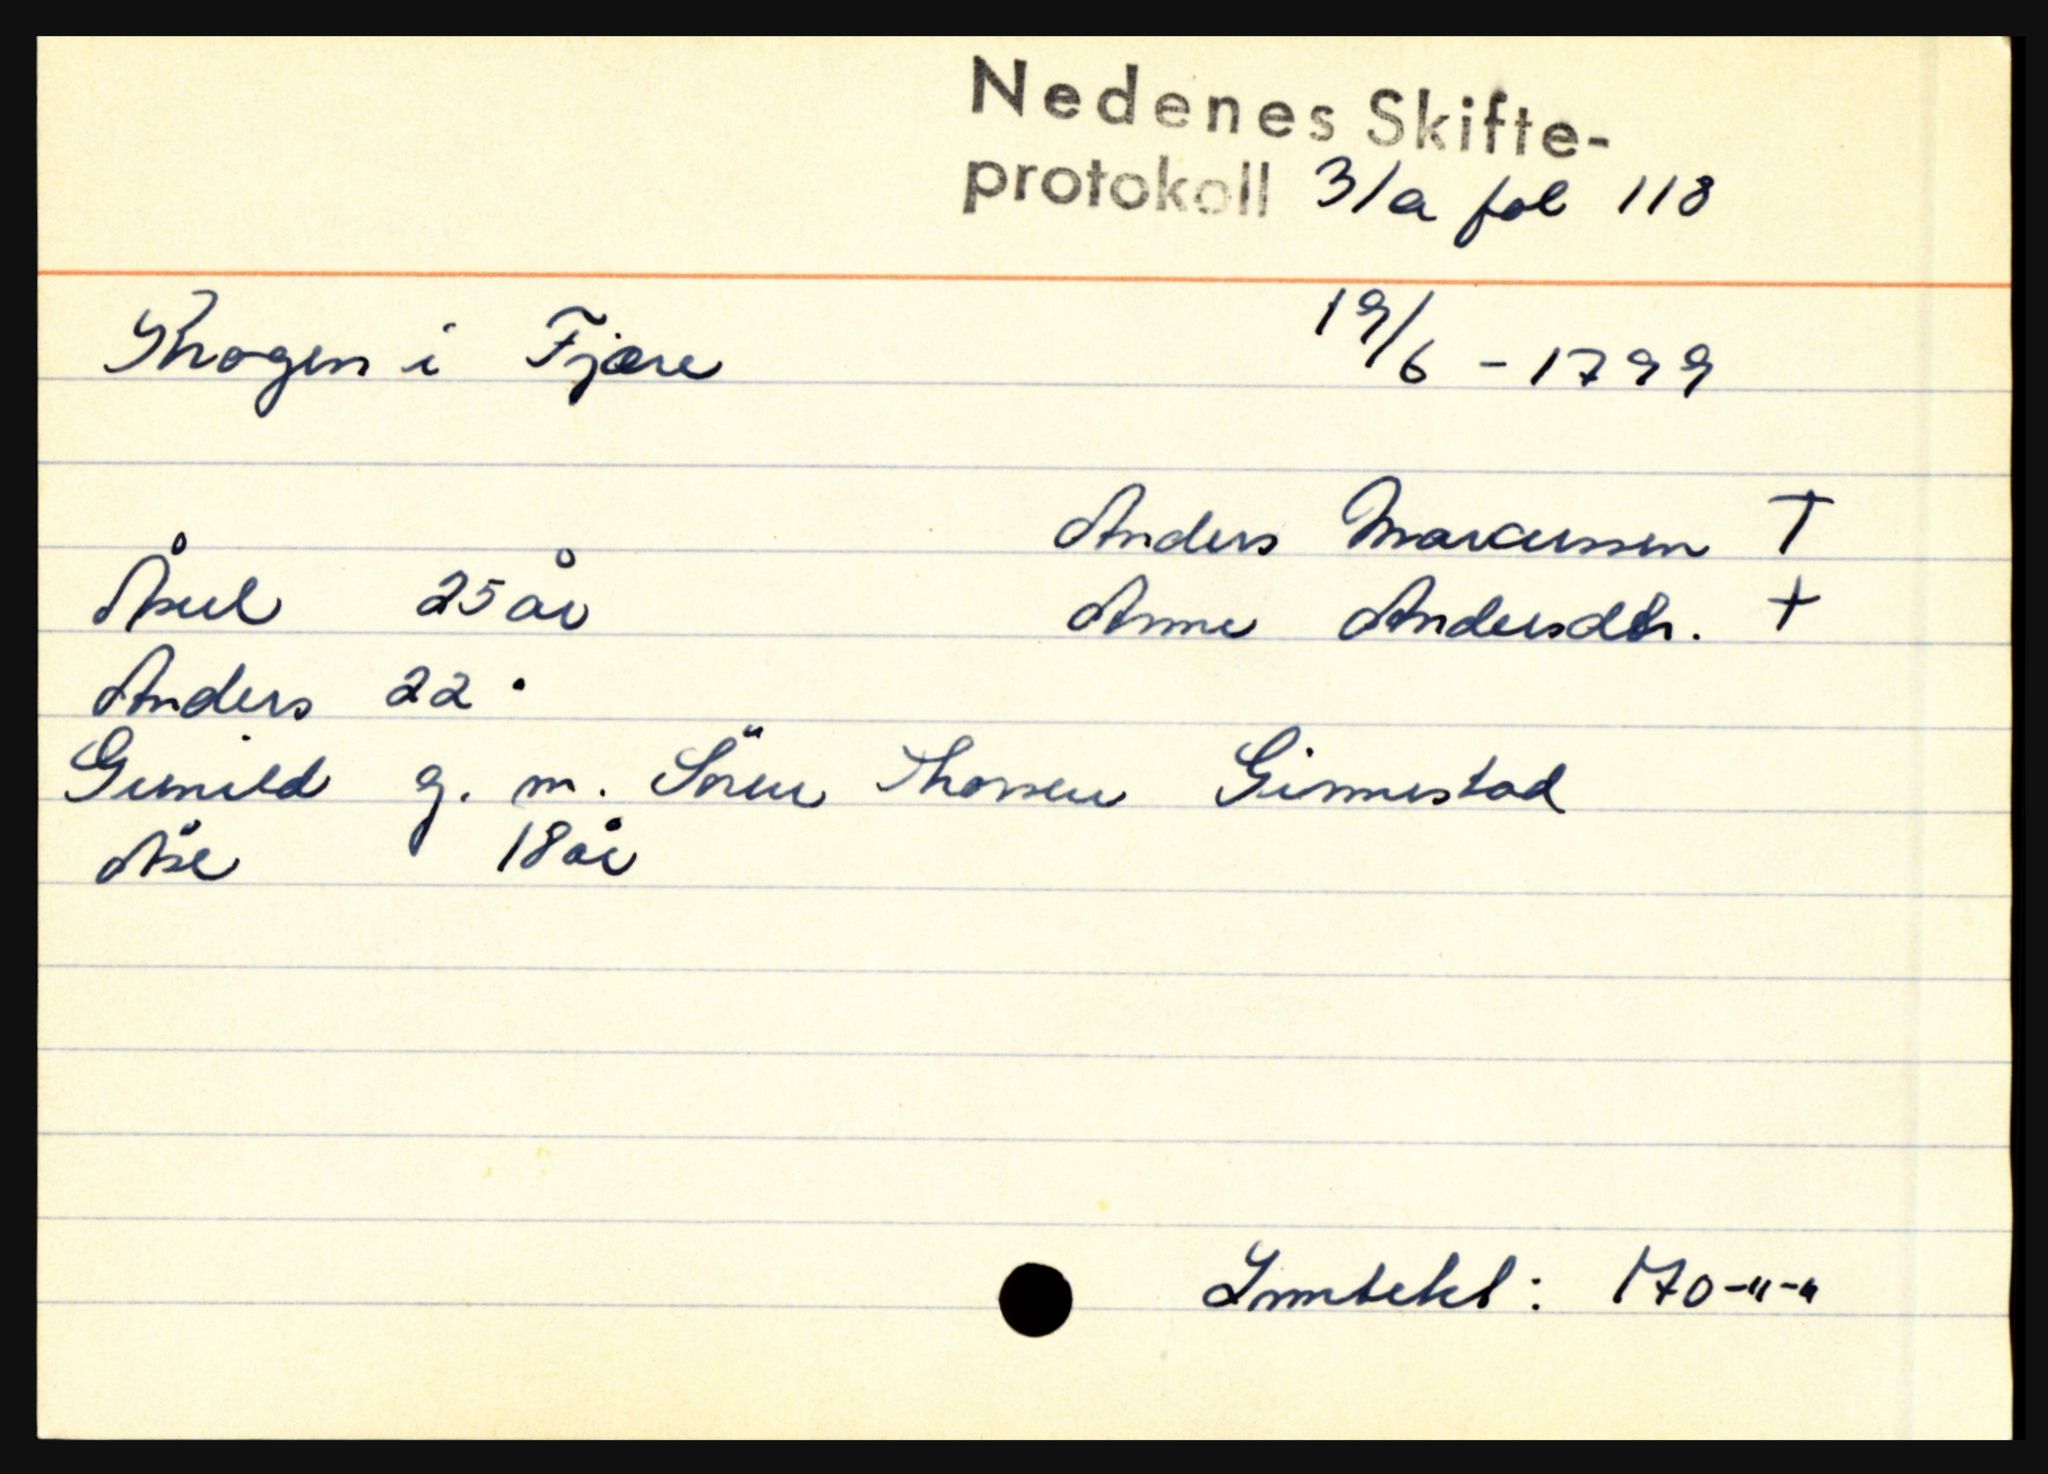 Nedenes Skifte-
protokoll 31a fol 118
Skogen i Fjære 19/6 - 1799
Anders Marcussen †
Åsul 25 år Anne Andersdtr. †
Anders 22 "
Gunild g. m. Søren Thorsen Ginnestad
Åse 18 år
Inntekt: 170-"-"